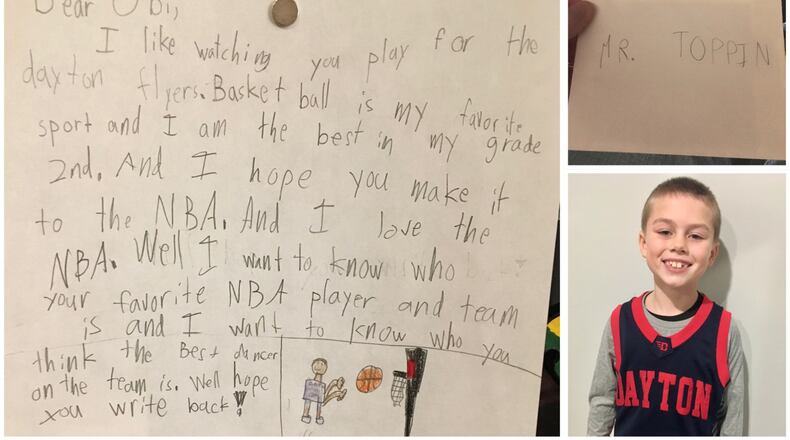 Dear Obi,
I like watching you play for the
dayton flyers. Basket ball is my favorite
sport and I am the best in my grade
2nd. And I hope you make it
to the NBA. And I love the
NBA. Well I want to know who
your favorite NBA player and team
is and I want to know who you
think the Best dancer
on the team is. Well hope
you write back!
MR. TOPPIN
D
DAYTON